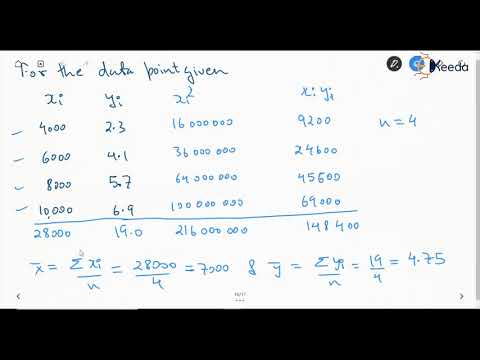 Keeda
For the data point given
xi yi xi² xi yi
4000 2.3 16 000 000 9200 n = 4
6000 4.1 36 000 000 24600
8000 5.7 64 000 000 45600
10,000 6.9 100 000 000 69000
28000 19.0 216 000 000 148 400
x̄ = Σxi/n = 28000/4 = 7000 & ȳ = Σyi/n = 19/4 = 4.75